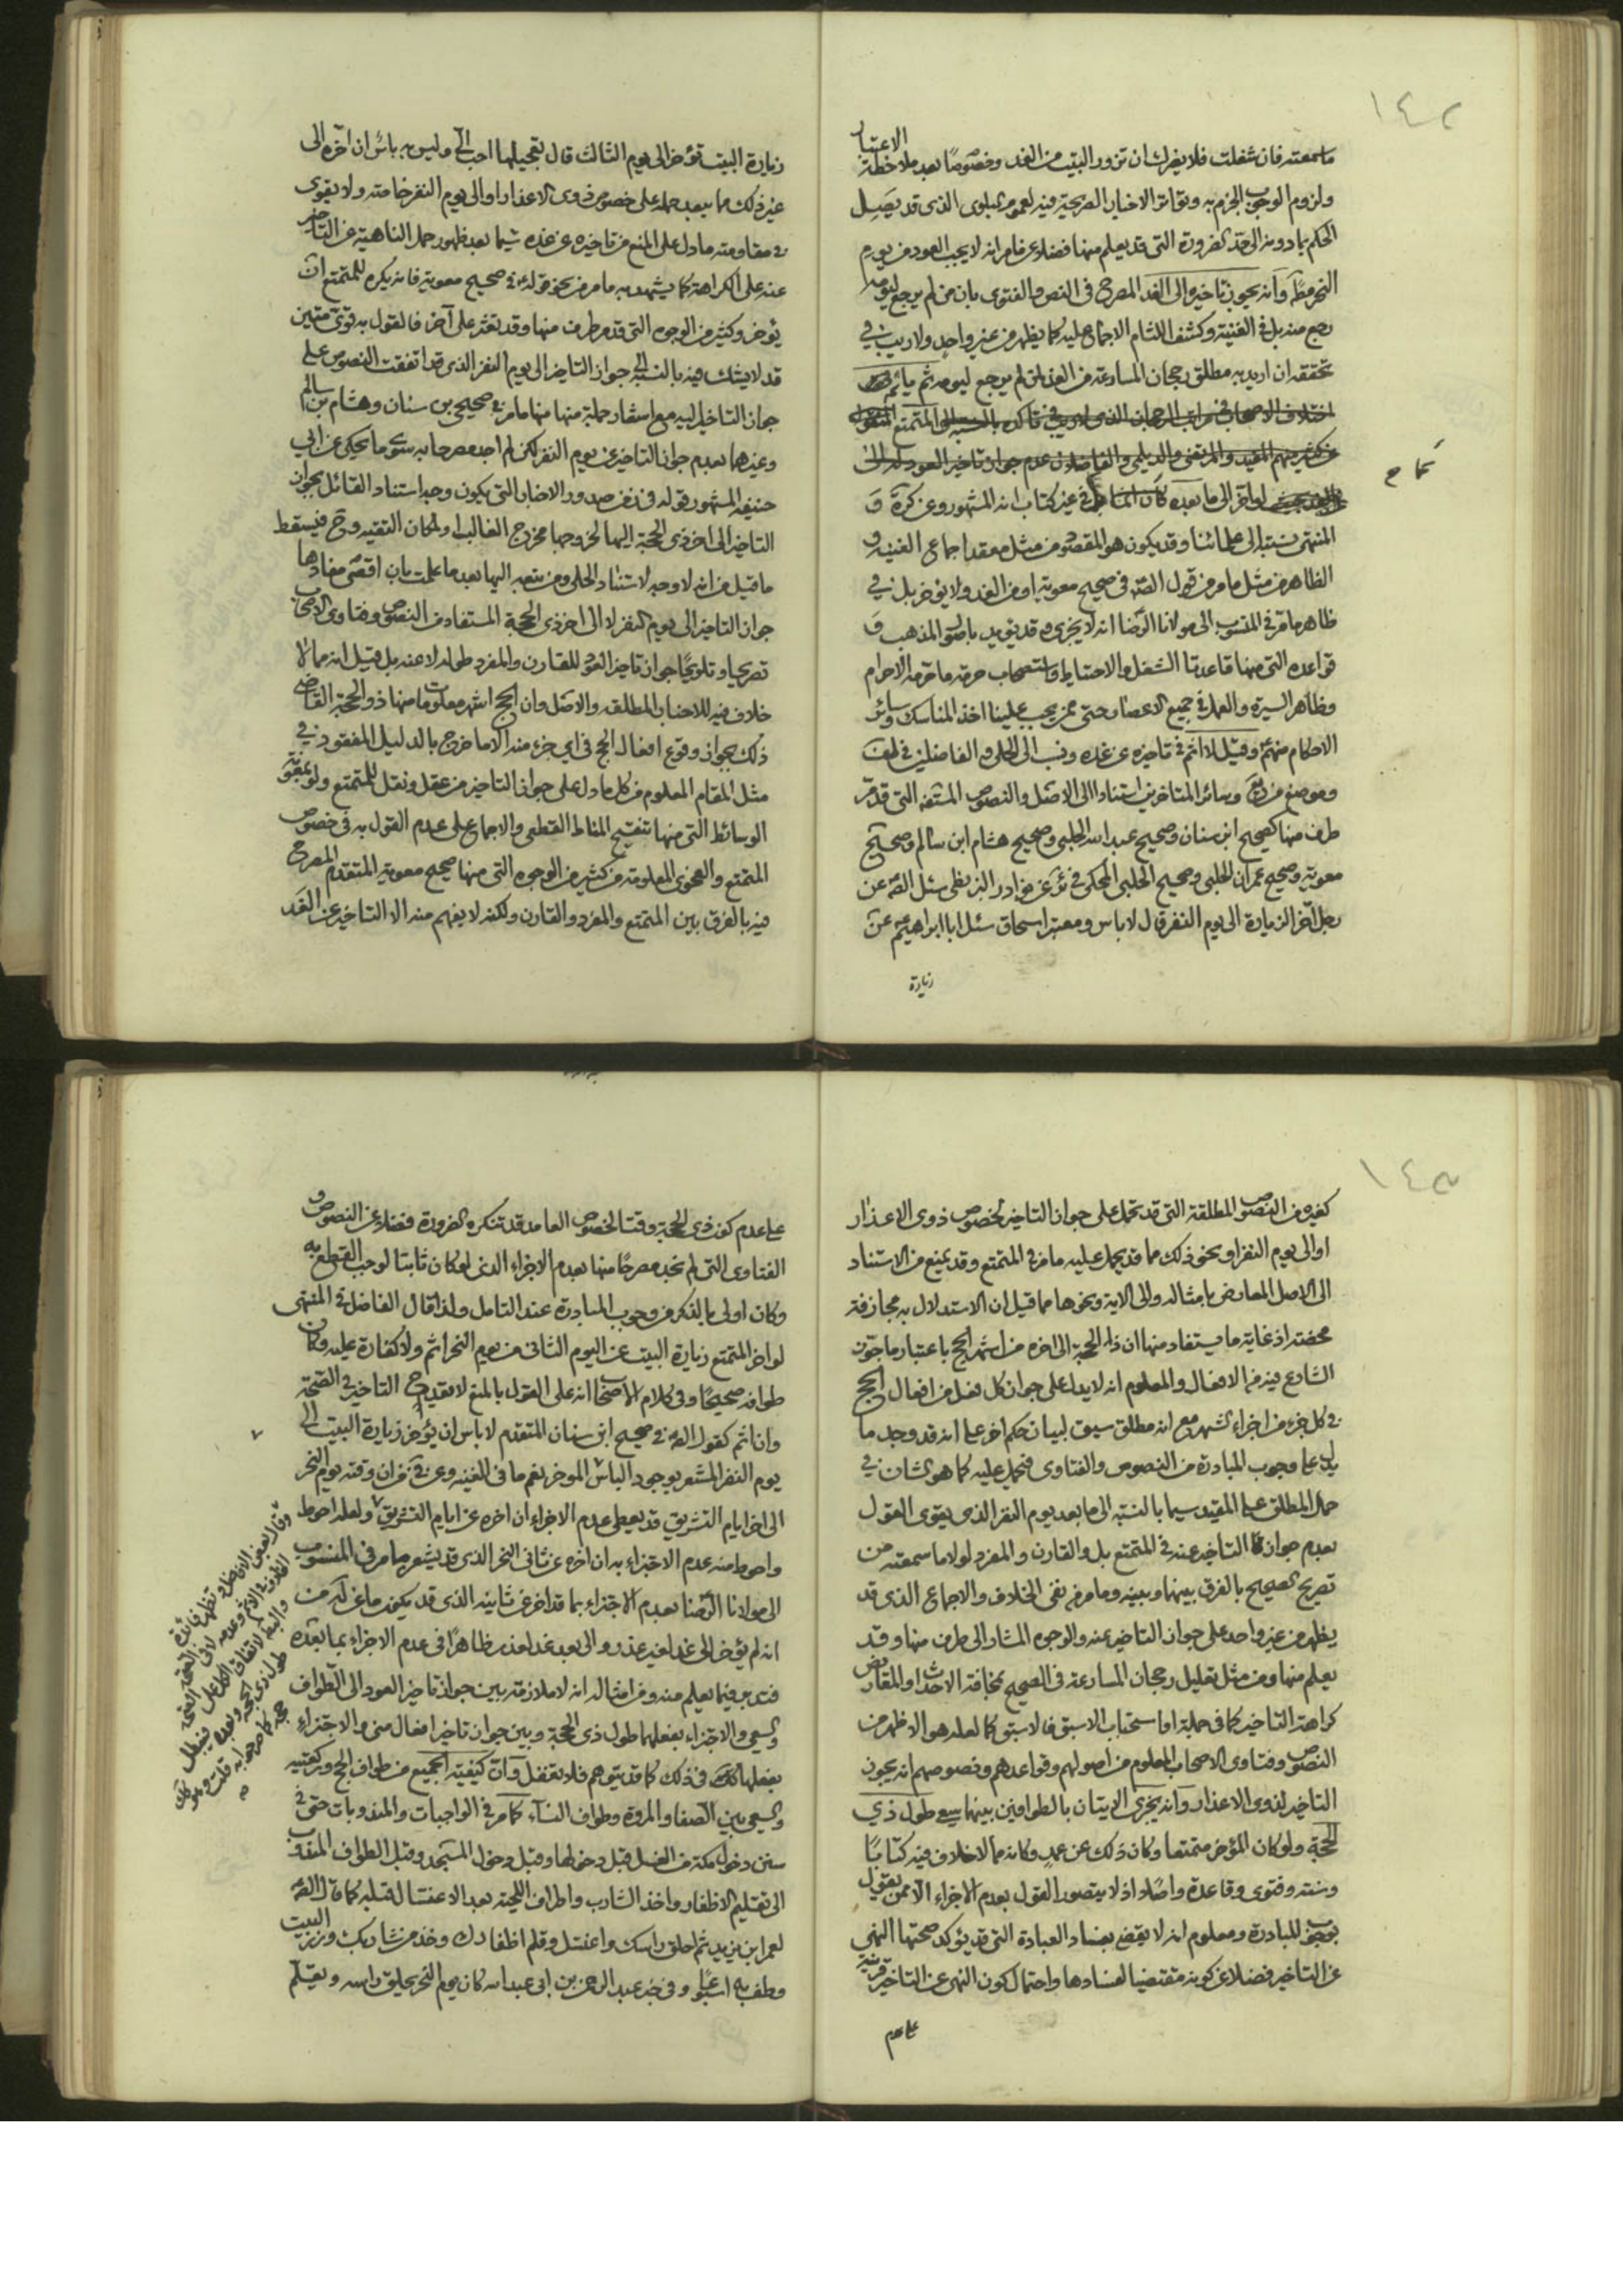 ١٤٢
الاعتبار
ما سمعته فان شغلت فلا يضرك ان تزور البيت من الغد وخصوصا بعد ملاحظة
ولزوم الوجوب الجزم به وتواتر الاخبار الصريحة فيه لعموم البلوى الذى قد يصل
الحكم بما دونه الى حد الضرورة التى قد يعلم منها فضلا عن مامر انه لا يجب العود من يوم
النحر مطلقا وانه يجوز تاخيره الى الغد المصرح فى النص والفتوى بان من لم يرجع ليومه
رجع من بل فى الغنية وكشف اللثام الاجماع عليه كما يظهر من غير واحد ولا ريب فى
تحققه ان اريد به مطلق رجحان المسارعة من الغد لمن لم يرجع ليومه ثم ياثم
اختلاف الاصحاب فى مراتب الرجحان الذى لا ريب فى تاكده بالنسبة الى المتمتع المنقول
عن كثير منهم المفيد والمرتضى والديلمى والفاضلان عدم جواز تاخير العود له الى
لو اخر الى ما بعده كان فى غير كتاب انه المشهور وعن كرة و
المنتهى نسبته الى علمائنا وقد يكون هو المقصود من مثل معقد اجماع الغنية و
الظاهر من مثل مامر من قول الصّه فى صحيح معوية او من الغد ولا يؤخر بل فى
ظاهر مامر فى المنسوب الى مولانا الرضا انه لا يجزى وقد يؤيد باصول المذهب و
قواعده التى منها قاعدتا الشغل والاحتياط واستصحاب حرمة ما حرمه الاحرام
وظاهر السيرة والعمل فى جميع الاعصار حتى ممن يجب علينا اخذ المناسك وسائر
الاحكام منهم وقيل لا اثم فى تاخيره عن غده ونسب الى الحلى والفاضلين فى لف
وموضع من وسائر المتاخرين استنادا الى الاصل والنصوص المستفيضة التى قد مر
طرف منها كصحيح ابن سنان وصحيح عبد الله الحلبى وصحيح هشام ابن سالم وصحيح
معوية وصحيح عمران الحلبى وصحيح الحلبى المحكى فى ئر عن نوادر البزنطى سئل الصّه عن
رجل اخر الزيارة الى يوم النفر قال لا باس ومعتبر اسحاق سئل ابا ابراهيم ع عن
زيارة
زيارة البيت تؤخر الى يوم الثالث قال تعجيلها احب الىّ وليس به باس ان اخره الى
غير ذلك مما يبعد حمله على خصوص ذوى الاعذار او الى يوم النفر خاصة ولا يقوى
فى مقاومته مادل على المنع من تاخيره عن غده سيما بعد ظهور حمل الناهية عن التاخير
عنه على الكراهة كما يشهد به مامر من نحو قوله ع فى صحيح معوية فانه يكره للمتمتع ان
يؤخر وكثير من الوجوه التى قد مر طرف منها وقد تعثر على آخر فالقول به قوى متين
قد لا يشك فيه بالنسبة الى جواز التاخير الى يوم النفر الذى قد اتفقت النصوص على
جواز التاخير اليه مع استفاد جملة منها منها مامر فى صحيحى بن سنان وهشام بن سالم
وغيرهما بعدم جواز التاخير عن يوم النفر لكن لم اجد مصرحا به سوى ما يحكى عن ابى
حنيفة المشهور قوله فى زمن صدور الاخبار التى يكون وجه استناد القائل بجواز
التاخير الى اخر ذى الحجة اليها لخروجها مخرج الغالب او لمكان التقية وح فيسقط
ما قيل من انه لا وجه لاستناد الحلى ومن تبعه اليها بعد ما علمت بان اقصى مفادها
جواز التاخير الى يوم النفر لا الى اخر ذى الحجة المستفاد من النصوص وفتاوى الاصحاب
تصريحا وتلويحا جواز تاخير العود للقارن والمفرد طوله لا عنه بل قيل انه مما لا
خلاف فيه للاخبار المطلقة والاصل وان الحج اشهر معلومات منها ذو الحجة القاضى
ذلك بجواز وقوع افعال الحج فى اى جزء منه الا ما خرج بالدليل المفقود فى
مثل المقام المعلوم من كل مادل على جواز التاخير من عقل ونقل للمتمتع ولو بمعونة
الوسائط التى منها تنقيح المناط القطعى والاجماع على عدم القول به فى خصوص
المتمتع والفحوى المعلومة من كثير من الوجوه التى منها صحيح معوية المتقدم المصرح
فيه بالفرق بين المتمتع والمفرد والقارن ولكنه لا يفهم منه الا التاخير عن الغد
١٤٣
كغيره من النصوص المطلقة التى قد تحمل على جواز التاخير لخصوص ذوى الاعذار
او الى يوم النفر او نحو ذلك مما قد يحمل عليه مامر فى المتمتع وقد يمنع من الاستناد
الى الاصل المعارض بامثاله والى الاية ونحوها مما قيل ان الاستدلال به مجازفة
محضة اذ غاية ما يستفاد منها ان ذا الحجة الى اخره من اشهر الحج باعتبار ما جوزه
الشارع فيه من الافعال والمعلوم انه لا يدل على جواز كل فعل من افعال الحج
فى كل جزء من اجزاء الشهر مع انه مطلق سيق لبيان حكم اخر على انه قد وجد ما
يدل على وجوب المبادرة من النصوص والفتاوى فتحمل عليه كما هو الشان فى
حمل المطلق على المقيد سيما بالنسبة الى ما بعد يوم النفر الذى يقوى القول
بعدم جواز التاخير عنه فى المتمتع بل والقارن والمفرد لولا ما سمعته من
تصريح الصحيح بالفرق بينهما وبينه ومامر من نفى الخلاف والاجماع الذى قد
يظهر من غير واحد على جواز التاخير عنه والوجوه المشار الى طرف منها وقد
يعلم منها ومن مثل تعليل رجحان المسارعة فى الصحيح بمخافة الاحداث او المعاريض
كراهة التاخير كما فى جملة او استحباب الاسبق فالاسبق كما لعله هو الاظهر من
النصوص وفتاوى الاصحاب المعلوم من اصولهم وقواعدهم ونصوصهم انه يجوز
التاخير لذوى الاعذار وانه يجزى الاتيان بالطوافين بينهما سعى طول ذى
الحجة ولو كان المؤخر متمتعا وكان ذلك عن عمد وكانه مما لا خلاف فيه كتابا
وسنة وفتوى وقاعدة واصلا اذ لا يتصور القول بعدم الاجزاء الا ممن يقول
بوجوب المبادرة ومعلوم انه لا يقضى بفساد العبادة التى قد يؤكد صحتها النهى
عن التاخير فضلا عن كونه مقتضيا لفسادها واحتمال كون النهى عن التاخير قرينة
على عدم
على عدم كون ذى الحجة وقتا لخصوص العامد قد تنكره الضرورة فضلا عن النصوص و
الفتاوى التى لم نجد مصرحا منها بعدم الاجزاء الذى لو كان ثابتا لوجب القطع به
وكان اولى بالذكر من وجوب المبادرة عند التامل ولذا قال الفاضل فى المنتهى
لو اخر المتمتع زيارة البيت عن اليوم الثانى من يوم النحر اثم ولا كفارة عليه وكان
طوافه صحيحا وفى كلام الاصحاب انه على القول بالمنع لا يقدح التاخير فى الصحة
وان اثم كقول الصّه فى صحيح ابن سنان المتقدم لا باس ان يؤخر زيارة البيت الى
يوم النفر المشعر بوجود الباس للمؤخر نعم ما فى الغنية وعن فى ان وقته يوم النحر
الى اخر ايام التشريق قد يعطى عدم الاجزاء ان اخره عن ايام التشريق ولعله احوط
واحوط منه عدم الاجتزاء به ان اخره عن ثانى النحر الذى قد يشعر به مامر فى المنسوب
الى مولانا الرضا بعدم الاجتزاء بما قد اخر عن ثانيه الذى قد يكون ما عن كره من
انه لم يؤخر الى غد لغير عذر والى بعد غد لعذر ظاهرا فى عدم الاجزاء بما بعده
فتدبر فيما يعلم منه ومن امثاله انه لا ملازمة بين جواز تاخير العود الى الطواف
والسعى والاجتزاء بفعلهما طول ذى الحجة وبين جواز تاخير افعال منى والاجتزاء
بفعلها فى ذلك كما قد يتوهم فلا تغفل وان كيفية الجميع من طواف الحج وركعتيه
والسعى بين الصفا والمروة وطواف النساء كما مر فى الواجبات والمندوبات حتى فى
سنن دخول مكة من الغسل قبل دخولها وقبل دخول المسجد وقبل الطواف المندوب
الى تقليم الاظفار واخذ الشارب واطراف اللحية بعد الاغتسال قبله كما قال الصّه
لعمر ابن يزيد ثم احلق راسك واغتسل وقلم اظفارك وخذ من شاربك وزر البيت
وطف به اسبوعا وفى خبر عبد الرحمن بن ابى عبد الله كان يوم النحر يحلق راسه ويقلم